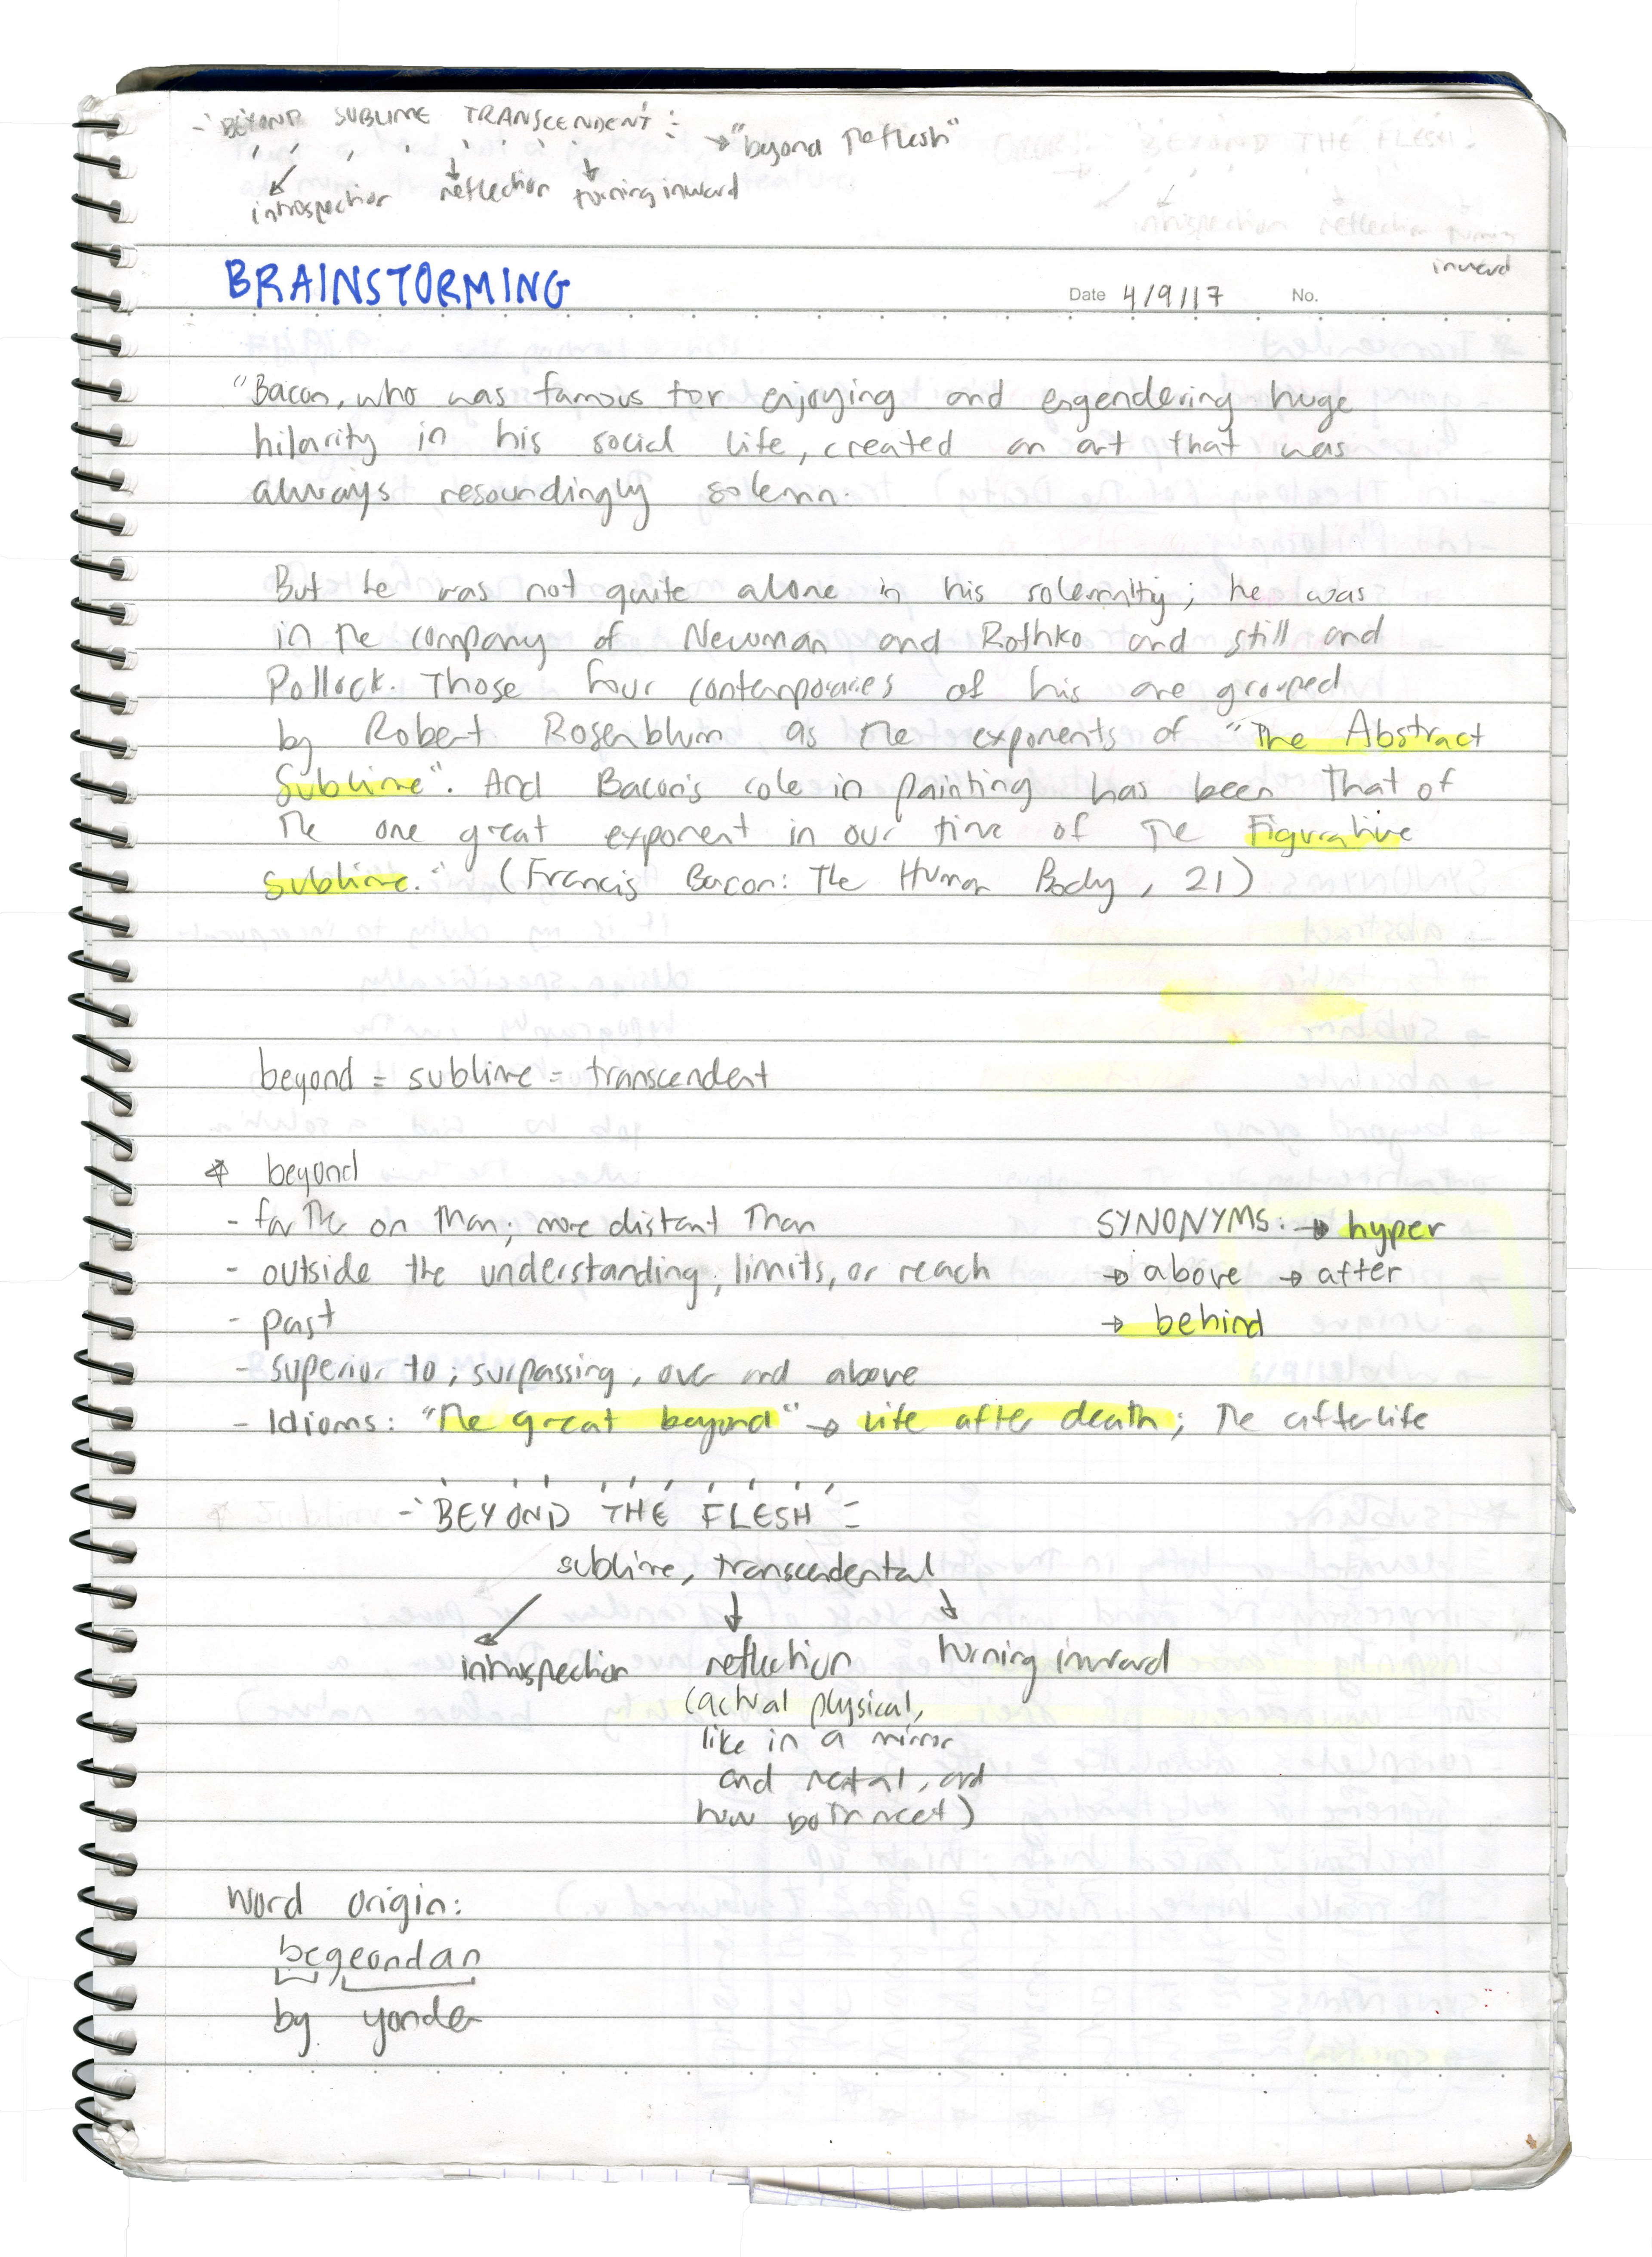 -'BEYOND SUBLIME TRANSCENDENT'- → "beyond the flesh"
introspection reflection turning inward
BEYOND THE FLESH
introspection reflection turning
inward
BRAINSTORMING
Date 4/9/17 No.
"Bacon, who was famous for enjoying and engendering huge
hilarity in his social life, created an art that was
always resoundingly solemn.
But he was not quite alone in his solemnity; he was
in the company of Newman and Rothko and still and
Pollock. Those four contemporaries of his are grouped
by Robert Rosenblum as the exponents of "The Abstract
Sublime". And Bacon's role in painting has been that of
the one great exponent in our time of the Figurative
sublime." (Francis Bacon: The Human Body, 21)
beyond = sublime = transcendent
* beyond
- farther on than; more distant than
SYNONYMS: → hyper
- outside the understanding, limits, or reach
→ above → after
- past
→ behind
- superior to; surpassing, over and above
- Idioms: "the great beyond" → life after death; the afterlife
-'BEYOND THE FLESH'-
sublime, transcendental
introspection reflection turning inward
(actual physical,
like in a mirror
and mental, and
how both meet)
word origin:
begeondan
by yonder